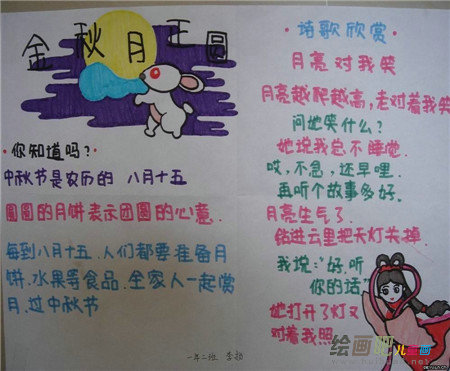 金秋月正圆
·你知道吗？·
中秋节是农历的 八月十五
圆圆的月饼表示团圆的心意.
每到八月十五.人们都要准备月
饼.水果等食品.全家人一起赏
月.过中秋节
一年二班 李扬
·诗歌欣赏·
月亮对我笑
月亮越爬越高,老对着我笑
问她笑什么?
她说我总不睡觉.
哎,不急,还早哩.
再听个故事多好.
月亮生气了.
钻进云里把天灯关掉.
我说:"好,听
你的话"
她打开了灯又
对着我照
绘画吧儿童画